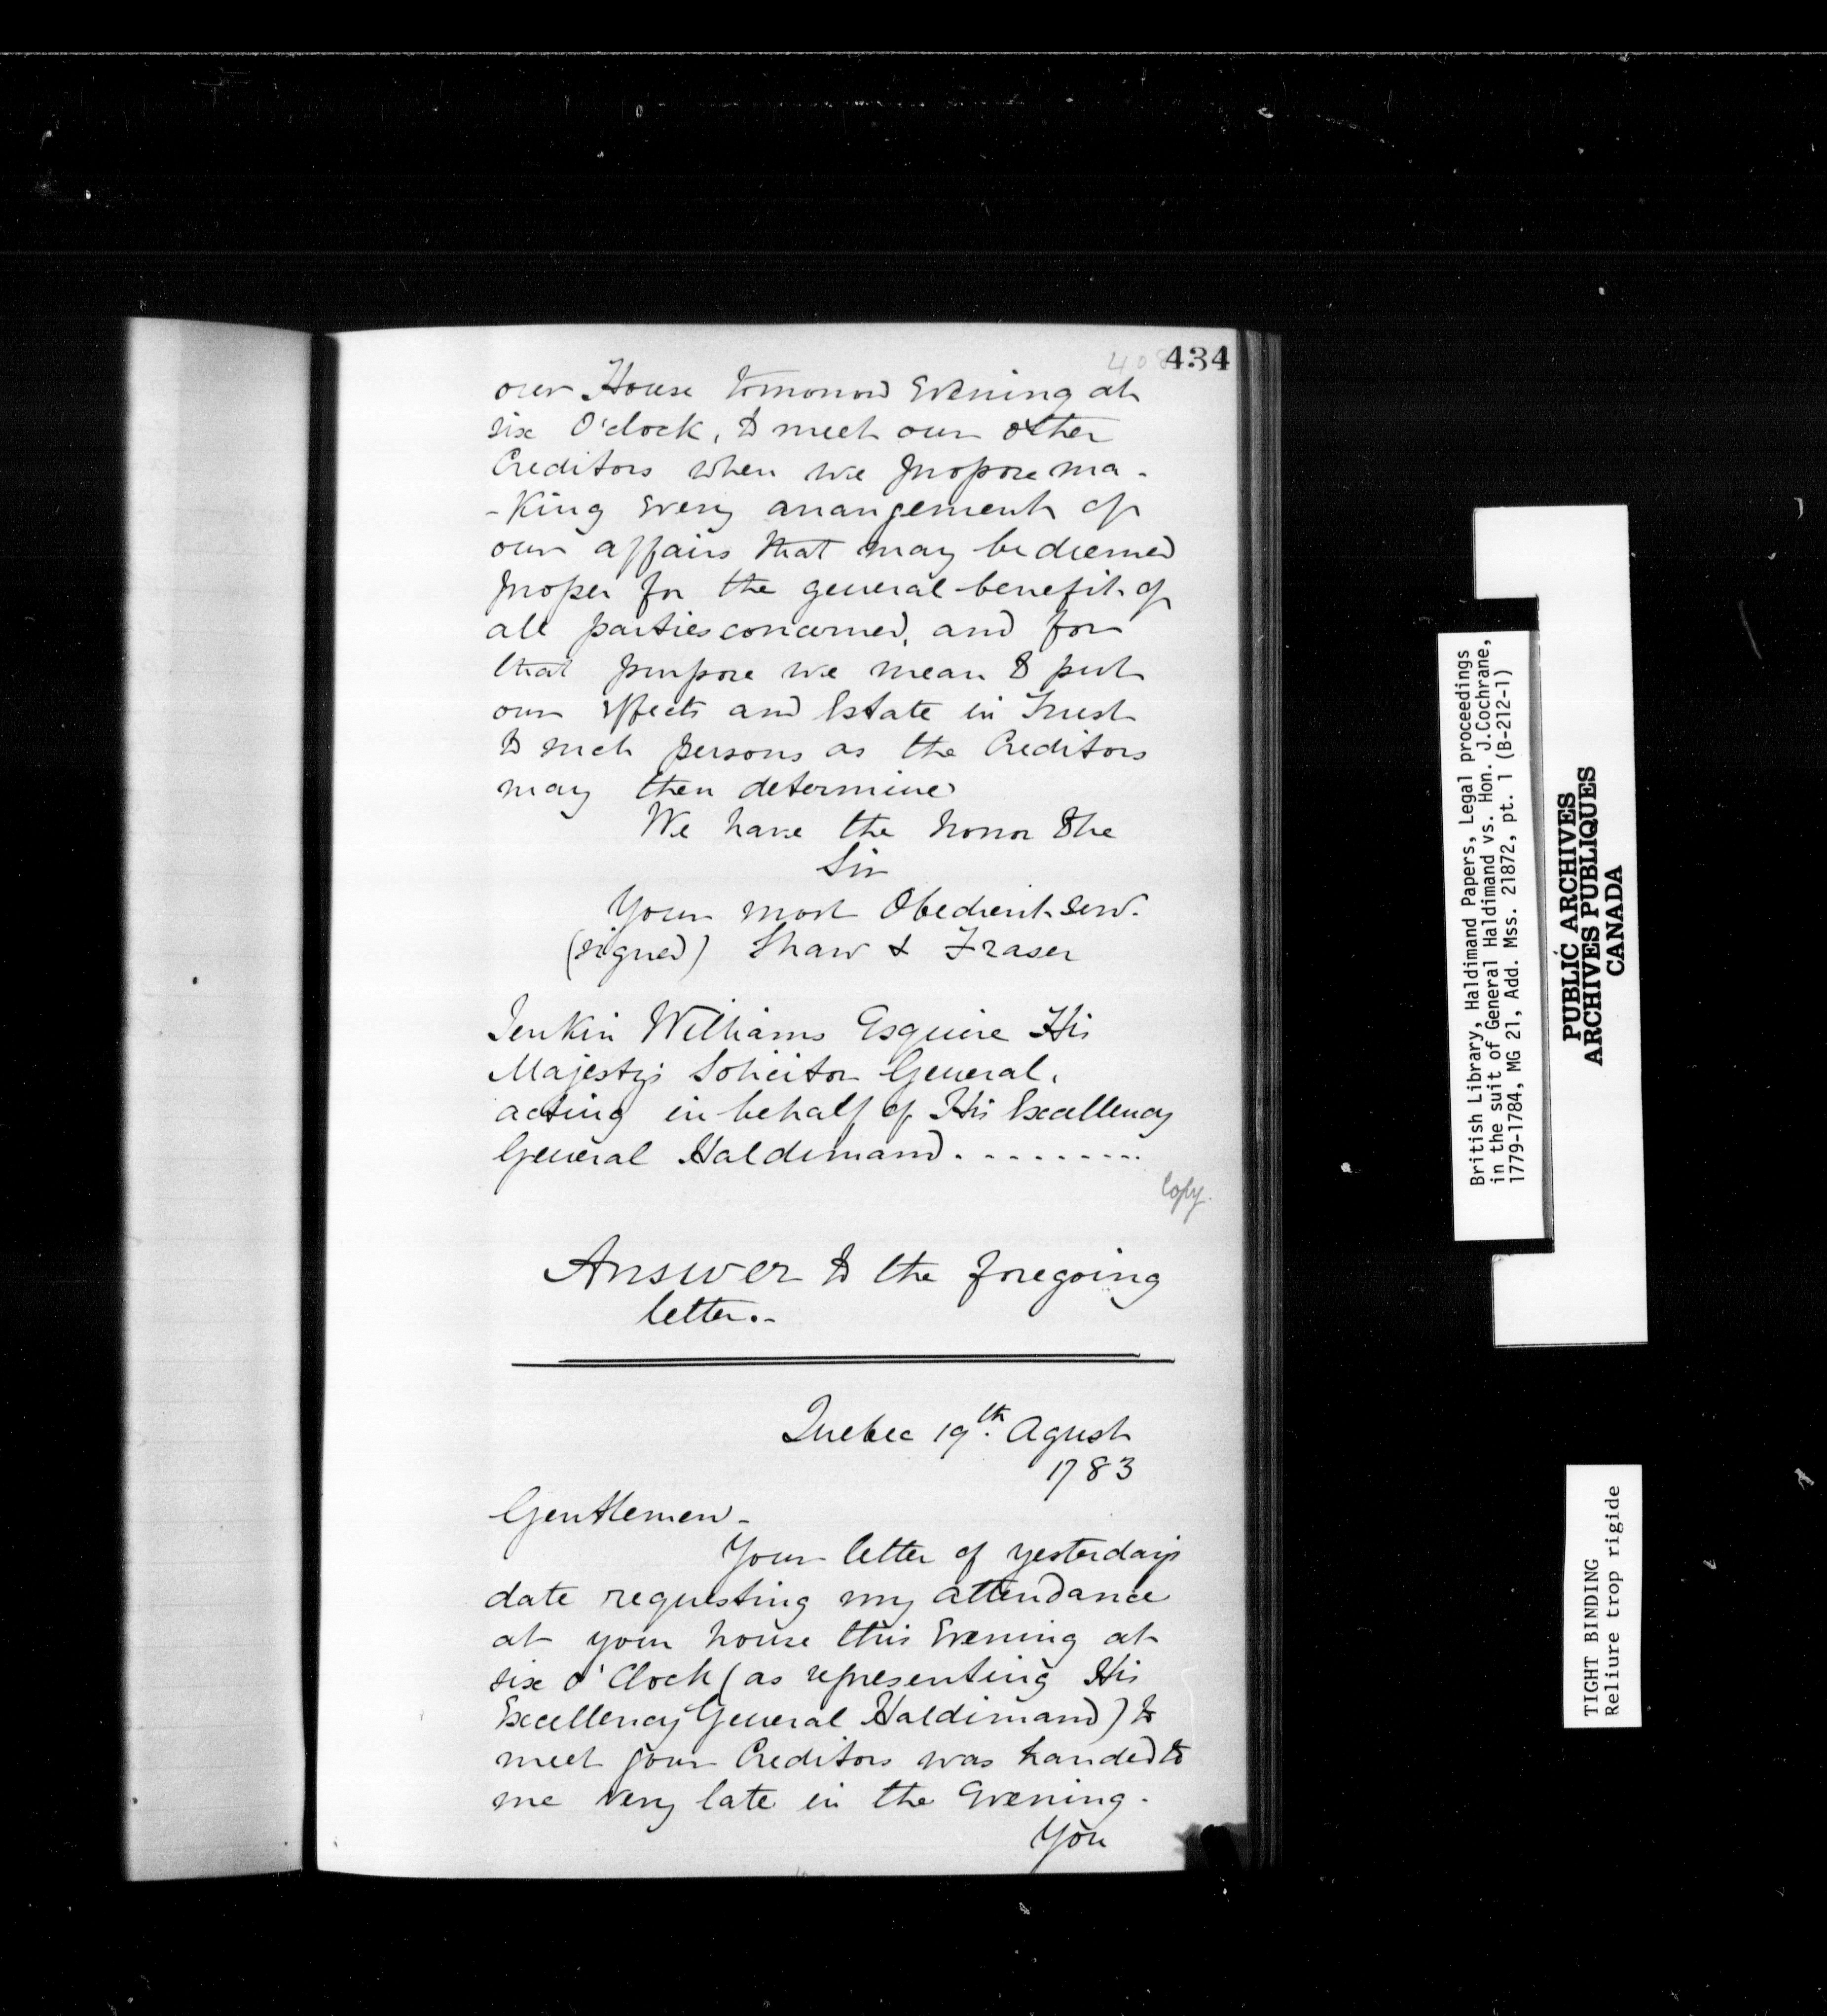 408 434
our House tomorrow Evening at
six O'clock, to meet our other
Creditors when we propose ma-
-King Every arrangement of
our affairs that may be deemed
proper for the general benefit of
all parties concerned, and for
that purpose we mean to put
our Effects and Estate in Trust
to such persons as the Creditors
may then determine
We have the honor to be
Sir
Your most Obedient serv.
(signed) Shaw & Fraser
Jenkin Williams Esquire His
Majesty's Solicitor General,
acting in behalf of His Excellency
General Haldimand..........
Copy.
Answer to the foregoing
letter.-
Quebec 19th. Agust
1783
Gentlemen-
Your letter of yesterdays
date requesting my attendance
at your house this Evening at
six o'Clock (as representing His
Excellency General Haldimand) to
meet your Creditors was handed to
me very late in the Evening.
You
British Library, Haldimand Papers, Legal proceedings
in the suit of General Haldimand vs. Hon. J.Cochrane,
1779-1784, MG 21, Add. Mss. 21872, pt. 1 (B-212-1)
PUBLIC ARCHIVES
ARCHIVES PUBLIQUES
CANADA
TIGHT BINDING
Reliure trop rigide